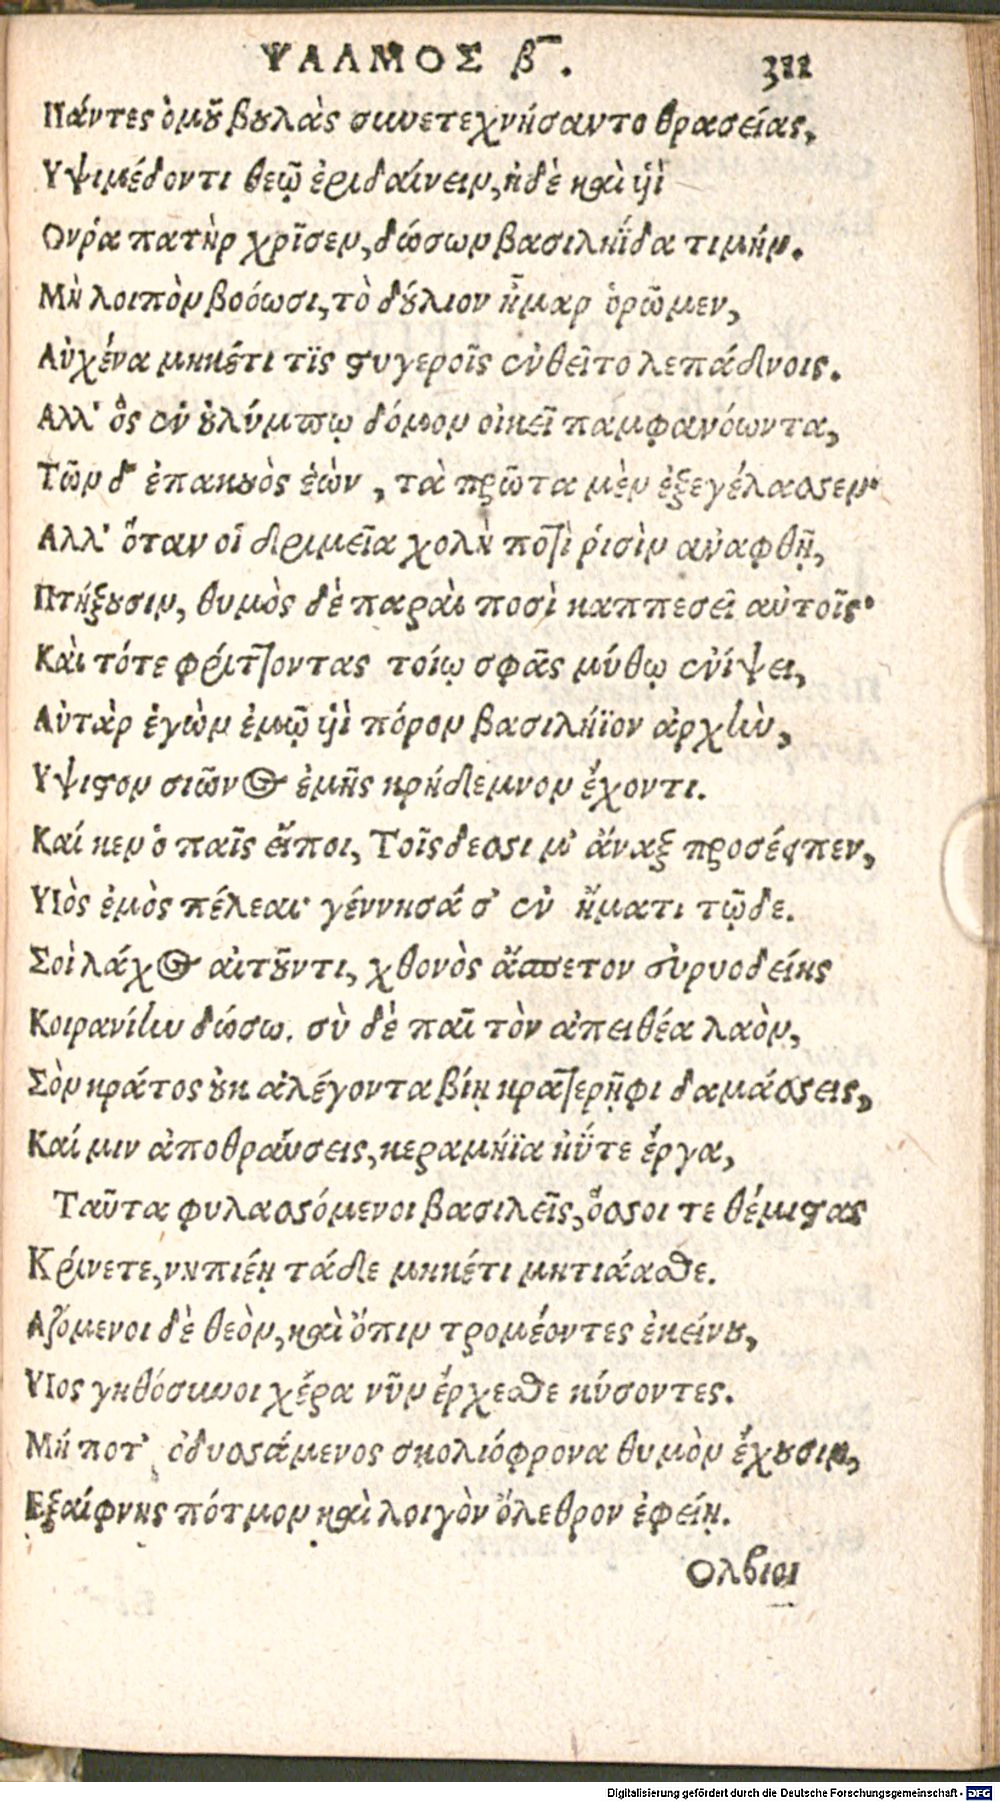 ΨΑΛΜΟΣ β̅. 311
Πάντες ὁμοῦ βουλὰς συνετεχνήσαντο θρασείας,
Υψιμέδοντι θεῷ ἐριδαίνειν, ἠδὲ καὶ υἱὶ
Ονῥα πατὴρ χρῖσεν, δώσων βασιληΐδα τιμήν.
Μὴ λοιπὸν βοόωσι, τὸ δούλιον ἦμαρ ὁρῶμεν,
Αὐχένα μηκέτι τῖς στυγεροῖς ἐνθεῖτο λεπάδνοις.
Αλλ' ὃς ἐν οὐλύμπῳ δόμον οἰκεῖ παμφανόωντα,
Τῶν δ' ἐπακουὸς ἐὼν, τὰ πρῶτα μὲν ἐξεγέλασσεν·
Αλλ' ὅταν οἱ δριμεῖα χολὴ ποτὶ ῥισὶν ἀναφθῇ,
Πτήξουσιν, θυμὸς δὲ παραὶ ποσὶ καππεσεῖ αὐτοῖς·
Καὶ τότε φρίττοντας τοίῳ σφᾶς μύθῳ ἐνίψει,
Αὐτὰρ ἐγὼν ἐμῷ υἱὶ πόρον βασιλήϊον ἀρχὴν,
Υψιστον σιῶνος ἐμῆς κρήδεμνον ἔχοντι.
Καί κεν ὁ παῖς εἴποι, Τοῖσδεσσι μ' ἄναξ προσέειπεν,
ΥΙὸς ἐμὸς πέλεαι· γέννησά σ' ἐν ἤματι τῷδε.
Σοὶ λάχος αἰτοῦντι, χθονὸς ἄσπετον εὐρυοδείης
Κοιρανίην δώσω. σὺ δὲ παῖ τὸν ἀπειθέα λαὸν,
Σὸν κράτος οὐκ ἀλέγοντα βίῃ κρατερῇφι δαμάσσεις,
Καί μιν ἀποθραύσεις, κεραμήϊα ἠΰτε ἔργα,
Ταῦτα φυλασσόμενοι βασιλεῖς, ὅσσοι τε θέμιστας
Κρίνετε, νηπιέῃ τάδε μηκέτι μητιάασθε.
Αζόμενοι δὲ θεὸν, καὶ ὄπιν τρομέοντες ἐκείνου,
ΥΙος γηθόσυνοι χέρα νῦν ἔρχεσθε κύσοντες.
Μή ποτ' ὀδυσσάμενος σκολιόφρονα θυμὸν ἔχουσιν,
Εξαίφνης πότμον καὶ λοιγὸν ὄλεθρον ἐφείῃ.
Ολβιοι
Digitalisierung gefördert durch die Deutsche Forschungsgemeinschaft - DFG